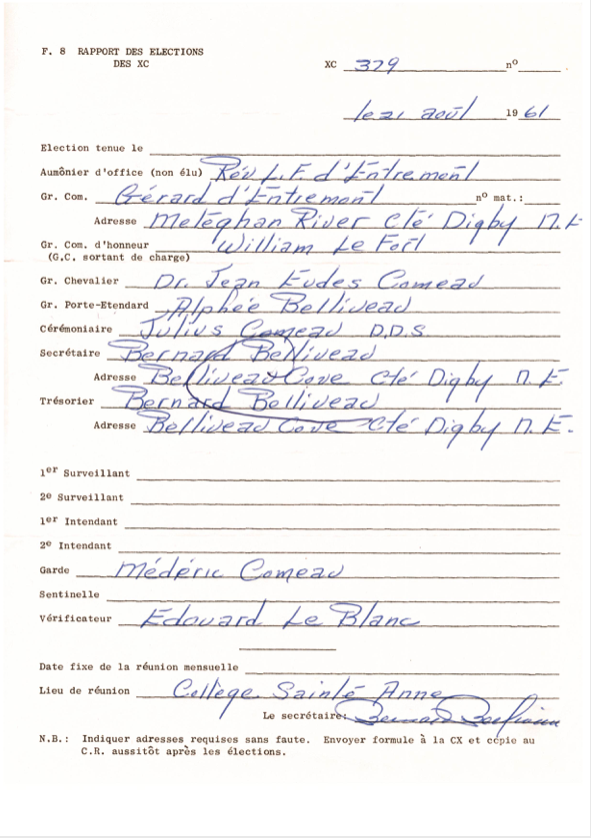 F. 8 RAPPORT DES ELECTIONS
DES XC
XC 379 nº
le 21 août 1961
Election tenue le
Aumônier d'office (non élu) Rév L.F. d'Entremont
Gr. Com. Gérard d'Entremont nº mat.:
Adresse Meteghan River Cté Digby N.E
Gr. Com. d'honneur William Le Fort
(G.C. sortant de charge)
Gr. Chevalier Dr. Jean Eudes Comeau
Gr. Porte-Etendard Alphée Belliveau
Cérémoniaire Julius Comeau D.D.S
Secrétaire Bernard Belliveau
Adresse Belliveau Cove Cté Digby N.E.
Trésorier Bernard Belliveau
Adresse Belliveau Cove Cté Digby N.E.
1er Surveillant
2e Surveillant
1er Intendant
2e Intendant
Garde Médéric Comeau
Sentinelle
Vérificateur Edouard Le Blanc
Date fixe de la réunion mensuelle
Lieu de réunion Collège Sainte Anne
Le secrétaire: Bernard Belliveau
N.B.: Indiquer adresses requises sans faute. Envoyer formule à la CX et copie au
C.R. aussitôt après les élections.